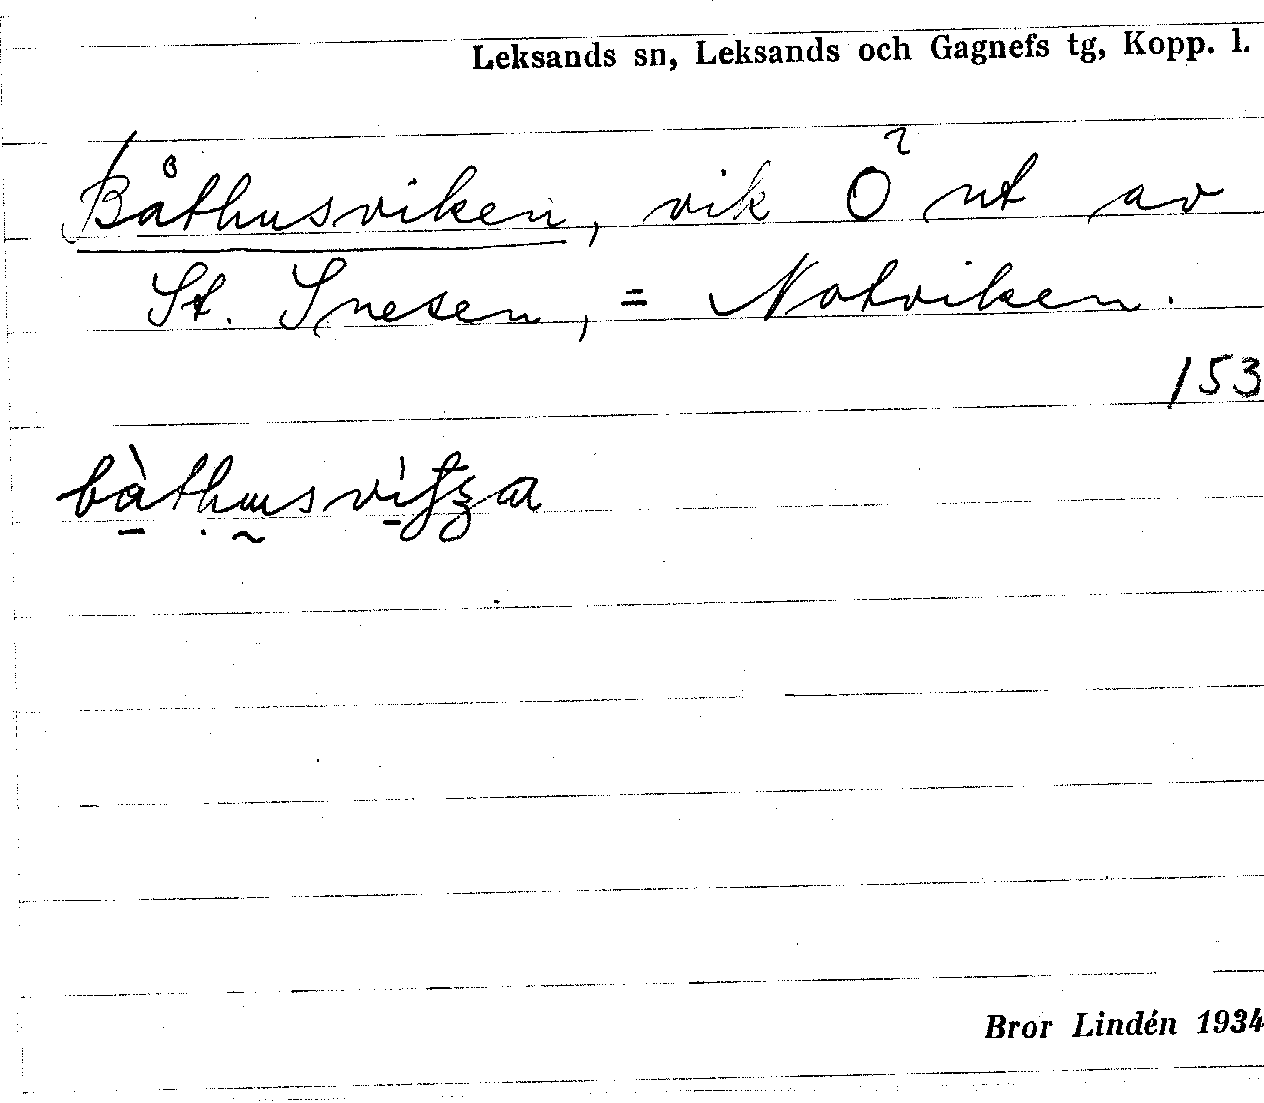 Leksands sn, Leksands och Gagnefs tg, Kopp. l.
Båthusviken, vik Ö ut av
St. Snesen, = Notviken.
153
Bror Lindén 1934